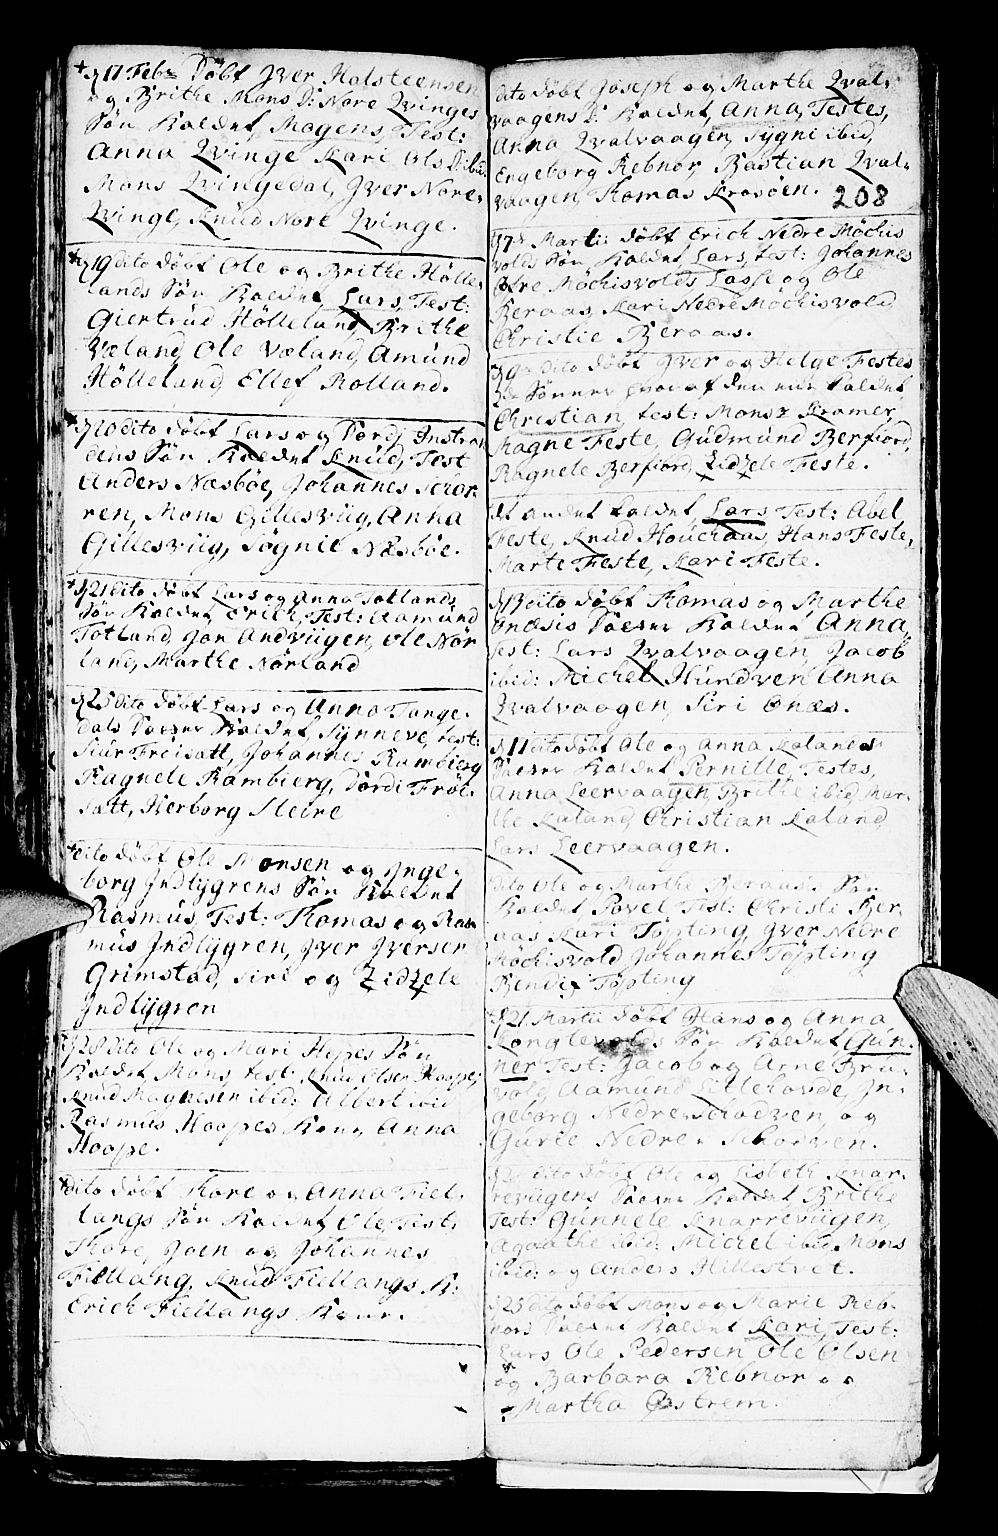 d 17 Febr Døbt Jver Halsteensen
og Brithe Mons D: Nore Qvinges
Søn Kaldet, Magens, Test:
Anna Qvinge Kari Ols D: ibid.
Mons Qvingedal, Jver Nore
Qvinge, Knud Nore Qvinge.
d 19 dito Døbt Ole og Brithe Hølle-
lands Søn Kaldet, Lars, Test:
Giertrud Hølleland, Brithe
Væland, Ole Væland, Amund
Hølleland, Ellef Rolland.
d 20 dito Døbt Lars og Dordj Instra-
dens Søn Kaldet Knud, Test
Anders Næsbøe, Johannes Schor
ren, Mons Gillesviig, Anna
Gillesviig, Sygnil Næsbøe.
d 21 dito Døbt Lars og Anna Totlands
Søn Kaldet Erich, Test: Aamund
Totland, Jon Andviigen, Ole Nør
land, Marthe Nørland
d 25 dito Døbt Lars og Anna Tange-
dals Daatter Kaldet, Synneve, test:
Siur Frøisatt, Johannes Rambierg
Ragnele Rambierg, Dordi Frøi-
satt, Herborg Steire
dito Døbt Ole Monsen og Inge-
borg Indlygrens Søn Kaldet
Rasmus, Test: Thomas og Ras
mus Indlygren, Jver Jversen
Grimstad, Siri og Zidzele
Indlygren
d 28 dito Ole og Mari Hopes Søn
Kaldet Mons, test: Knud Olsen Hoope,
Knud Magnesen ibid: Albert ibid
Rasmus Hoopes Kone, Anna
Hoope.
dito Døbt Thore og Anna Fiel-
langs Søn Kaldet, Ole, Test:
Thore, Joen og Johannes
Fiellang, Knud Fiellangs K:
Erich Fiellangs Kone.
dito Døbt Joseph og Marthe Qval-
vaagens D: Kaldet, Anna, Testes,
Anna Qvalvaagen, Sygni ibid,
Engeborg Rebnor, Bastian Qval-
vaagen, Thomas Krosøen. 208
d 7 Martii Døbt Erich Nedre Mochis
volds Søn Kaldet Lars, test: Johannes
Øvre Mochisvolds Lasse og Ole
Beraas, Kari Nedre Mochisvold
Christie Beraas.
d 9 dito Døbt Jver og Helge Festes
2de Sønner hvoraf den ene Kaldet
Christian, test: Mons Kramer,
Magne Feste, Gudmund Berfiord,
Ragnele Berfiord, Zidzele Feste.
det andet Kaldet Lars Test: Abel
Feste, Knud Houchaas, Hans Feste,
Marte Feste, Kari Feste.
d 13 dito Døbt Thomas og Marthe
Onæsis Daatter Kaldet Anna,
test: Lars Qvalvaagen, Jacob
ibid: Michel Hundven Anna
Qvalvaagen, Siri Onæs.
dito Døbt Ole og Anna Kalands
Daatter Kaldet Pernille, Testes,
Anna Leervaagen, Brithe ibid, Mar-
the Kaland, Christian Kaland
Lars Leervaagen.
dito Ole og Marthe Beraas Søn
Kaldet Povel Test: Christi Ber
aas Kari Tøpting, Jver Nedre
Mochisvold Johannes Tøpting
Bendix Tøpting
d 21 Martii Døbt Hans og Anna
Konglevolds Søn Kaldet Gun-
ner Test: Jacob og Arne Bru-
vold, Aamund Lillehovde, In-
geborg Nedre Schodven, og
Gurie Nedre Schodven.
dito Døbt Ole og Lisbeth Knar-
reviigens Daatter Kaldet Brithe
Test: Gunnele Knarreviigen,
Agaathe ibid: Michel ibid, Mons
ibid: og Anders Hillestvet.
d 25 dito Døbt Mons og Marie Reb-
nors Daatter Kaldet Kari, Test:
Lars Ole Pedersen Ole Olsen
og Barbara Rebnor og
Martha Østrem.